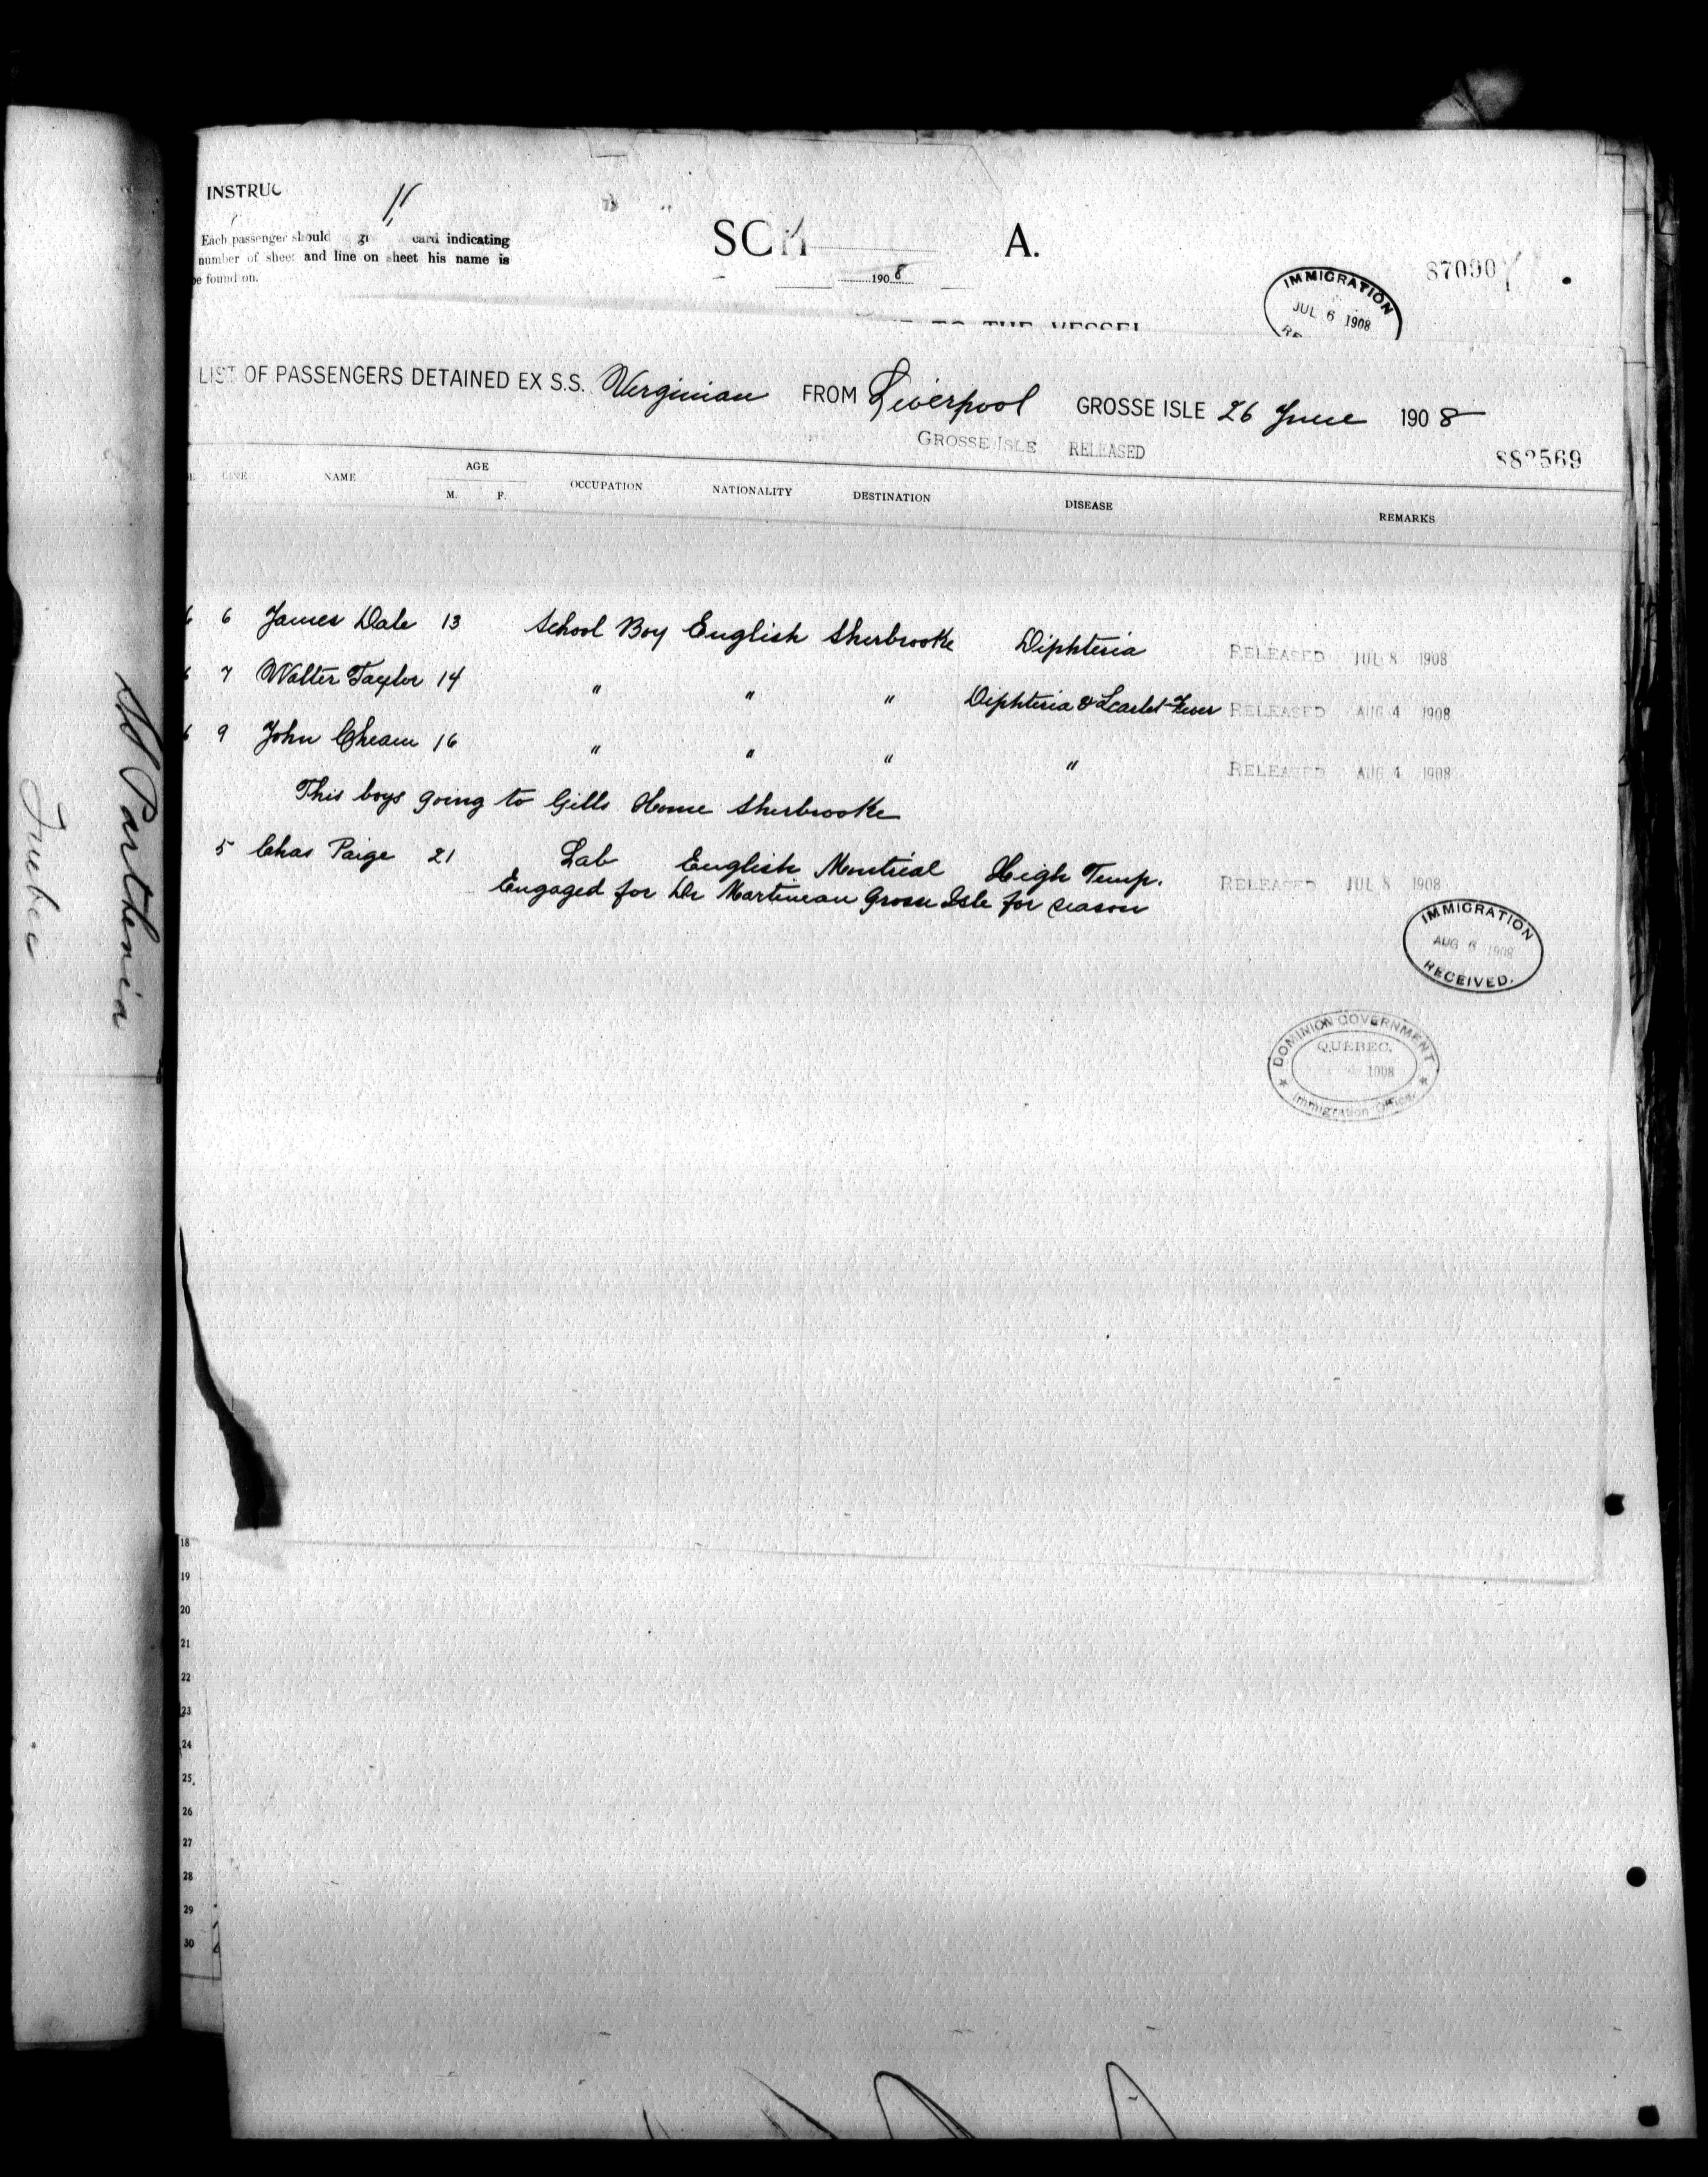 INSTRUC
11
Each passenger should card indicating
number of sheet and line on sheet his name is
be found on.
A.
1908
87090
IMMIGRATION
JUL 6 1908
LIST OF PASSENGERS DETAINED EX S.S. Virginian FROM Liverpool GROSSE ISLE 26 June 1908
GROSSE ISLE RELEASED
882569
LINE NAME AGE M. F. OCCUPATION NATIONALITY DESTINATION DISEASE REMARKS
6 6 James Dale 13 School Boy English Sherbrooke Diphteria RELEASED JUL 8 1908
6 7 Walter Taylor 14 " " " Diphteria & Scarlet Fever RELEASED AUG 4 1908
6 9 John Cheam 16 " " " " RELEASED AUG 4 1908
This boys going to Gills Home Sherbrooke
5 Chas Paige 21 Lab English Montreal High Temp. RELEASED JUL 8 1908
Engaged for Dr Martineau Grosse Isle for season
IMMIGRATION
AUG 6 1908
RECEIVED.
DOMINION GOVERNMENT
QUEBEC.
1908
Immigration Office
18
19
20
21
22
23
24
25
26
27
28
29
30
SS Parthenia
Quebec